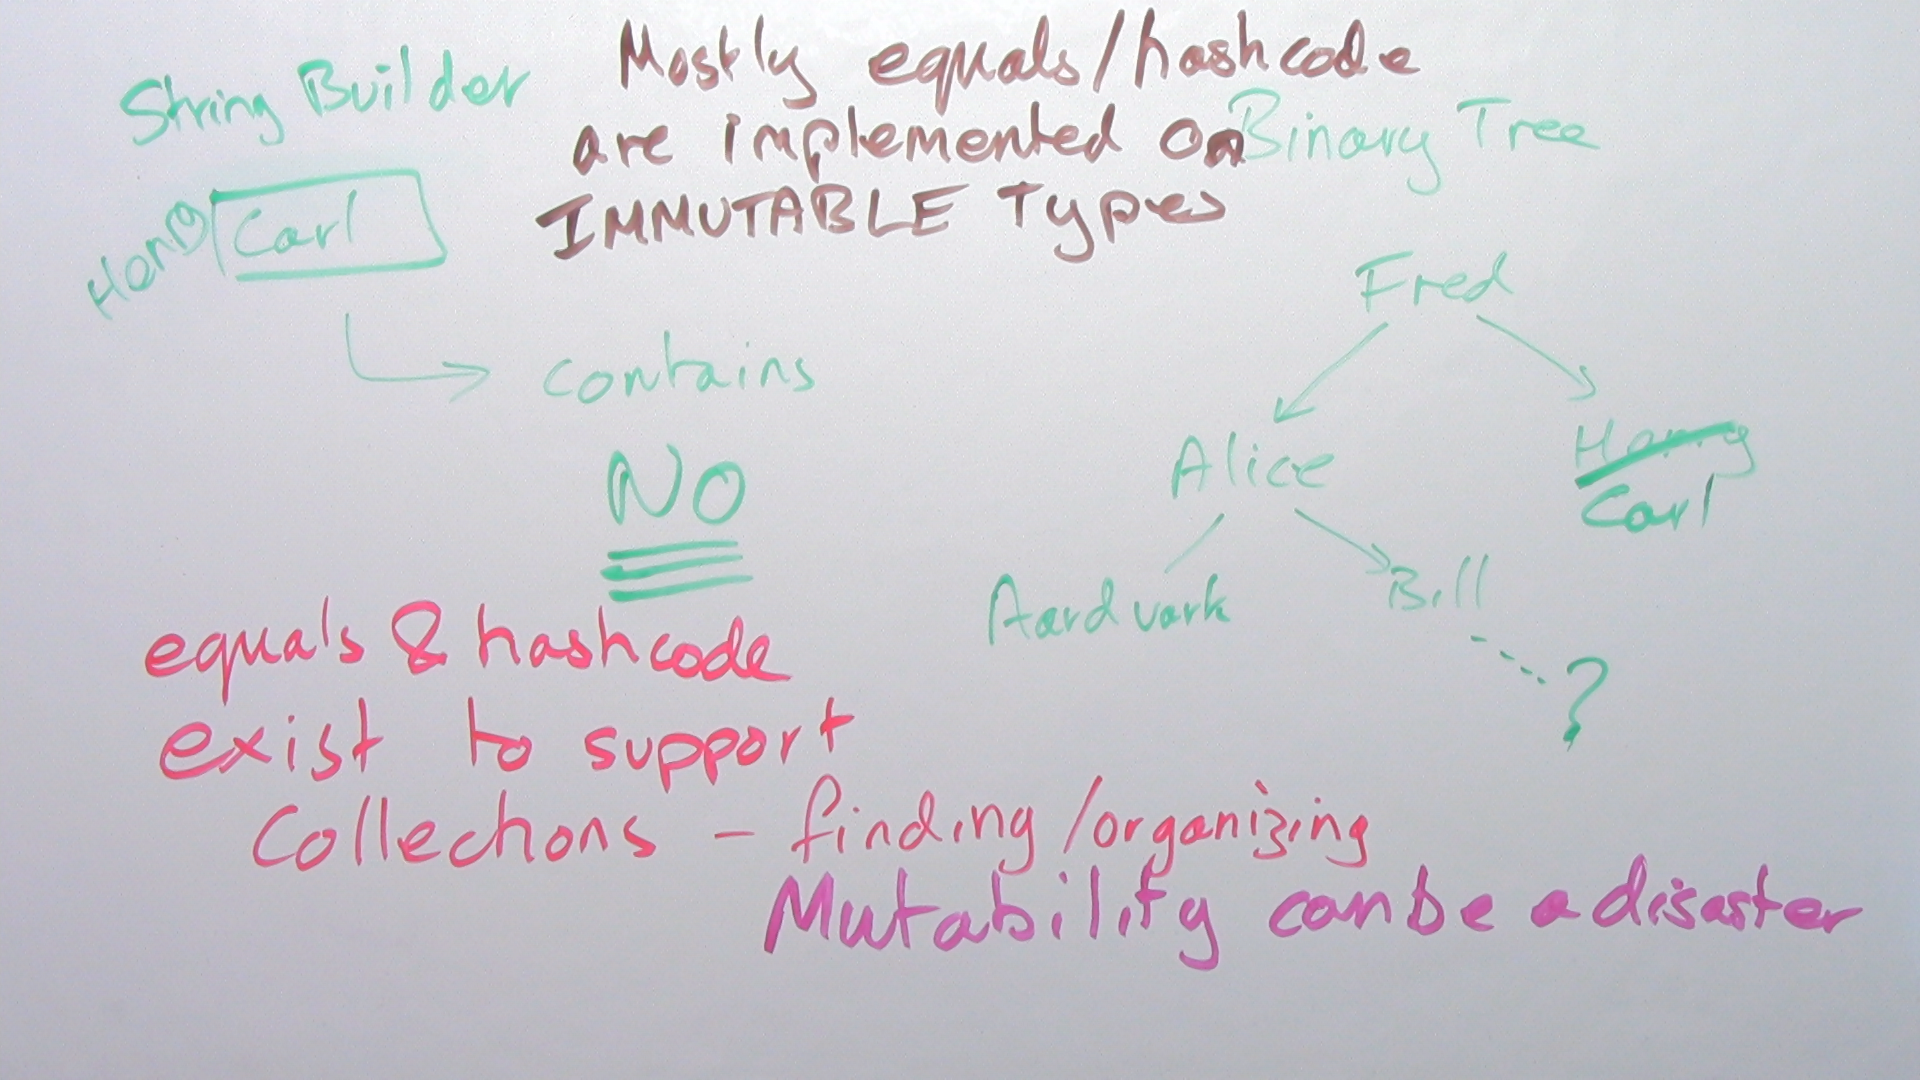 String Builder
Mostly equals/hashcode
are implemented on
IMMUTABLE Types
Binary Tree
Harry
Carl
Fred
contains
Alice
Harry
Carl
NO
Aardvark
Bill
?
equals & hashcode
exist to support
Collections - finding/organizing
Mutability can be a disaster